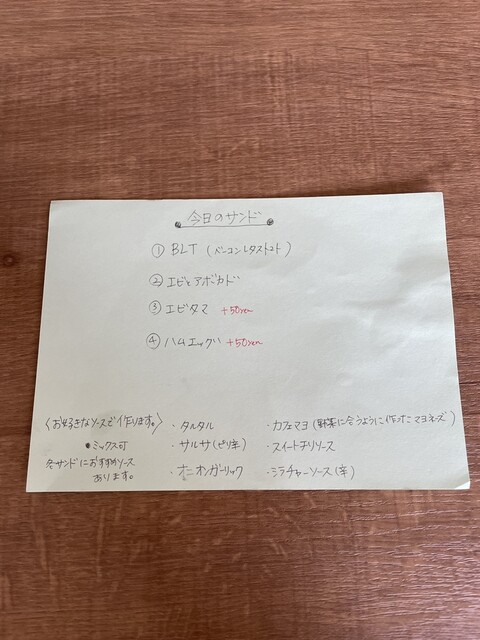 今日のサンド
① BLT (ベーコンレタストマト)
② エビとアボカド
③ エビタマ +50yen
④ ハムエッグ +50yen
〈お好きなソースで作ります。〉
● ミックス可
各サンドにおすすめソース
あります。
・タルタル
・サルサ(ピリ辛)
・オニオンガーリック
・カフェマヨ(野菜に合うように作ったマヨネーズ)
・スイートチリソース
・シラチャーソース(辛)